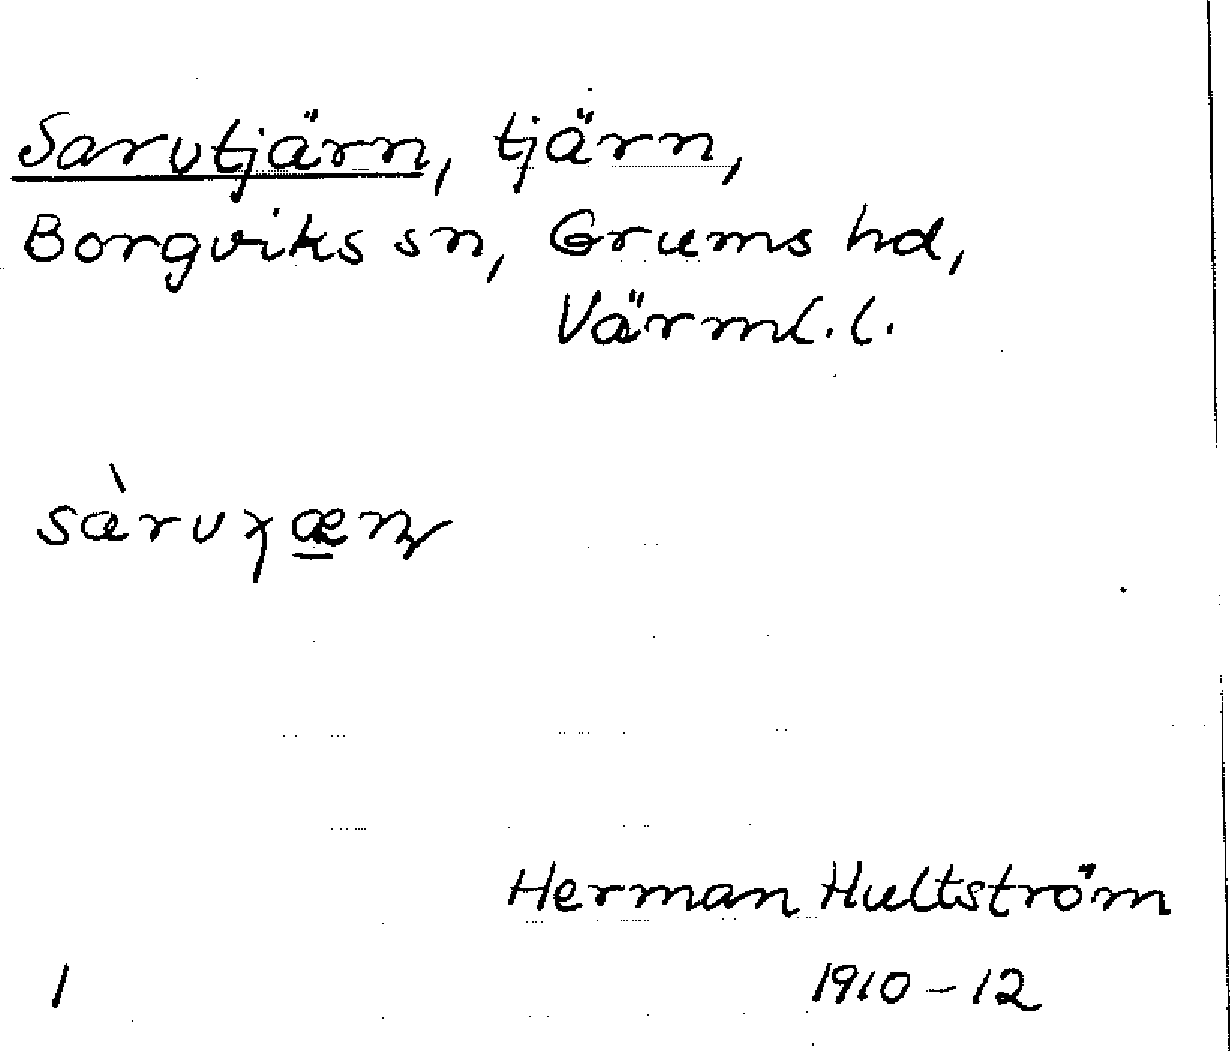 Sarvtjärn, tjärn,
Borgviks sn, Grums hd,
Värml.l.
Herman Hultström
1 1910-12